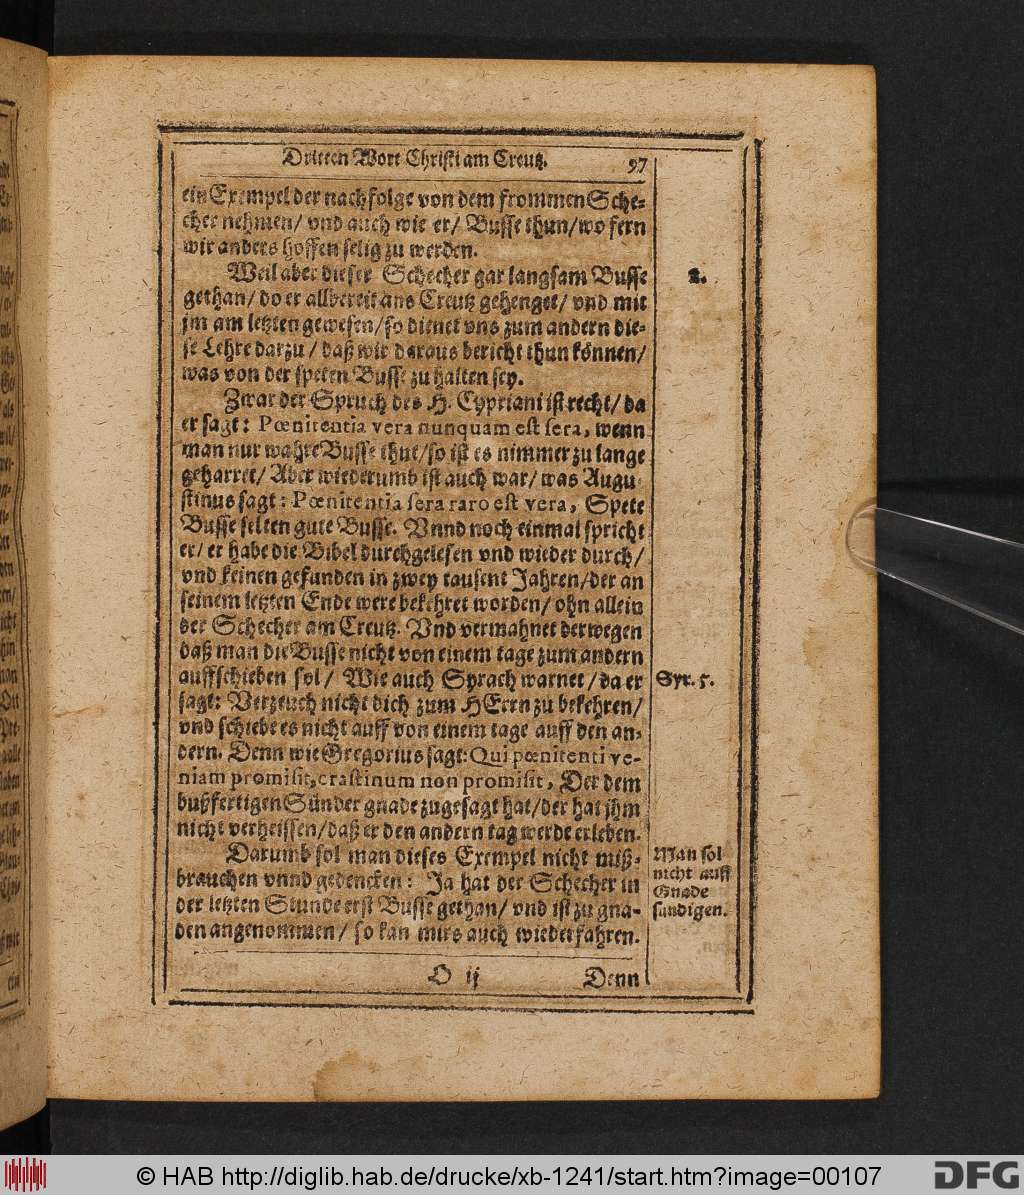 Dritten Wort Christi am Creutz. 97
ein Exempel der nachfolge von dem frommen Sche-
cher nehmen/ vnd auch wie er/ Busse thun/ wo fern
wir anders hoffen selig zu werden.
Weil aber dieser Schecher gar langsam Busse
gethan/ do er allbereit ans Creutz gehenget/ vnd mit
jm am letzten gewesen/ so dienet vns zum andern die-
se Lehre darzu/ daß wir daraus bericht thun können/
was von der speten Busse zu halten sey.
2.
Zwar der Spruch des H. Cypriani ist recht/ da
er sagt: Pœnitentia vera nunquam est sera, wenn
man nur wahre Busse thut/ so ist es nimmer zu lange
geharret/ Aber wiederumb ist auch war/ was Augu-
stinus sagt: Pœnitentia sera raro est vera, Spete
Busse selten gute Busse. Vnnd noch einmal spricht
er/ er habe die Bibel durchgelesen vnd wieder durch/
vnd keinen gefunden in zwey tausent Jahren/ der an
seinem letzten Ende were bekehret worden/ ohn allein
der Schecher am Creutz. Vnd vermahnet derwegen
daß man die Busse nicht von einem tage zum andern
auffschieben sol/ Wie auch Syrach warnet/ da er
sagt: Verzeuch nicht dich zum HErrn zu bekehren/
vnd schiebe es nicht auff von einem tage auff den an-
dern. Denn wie Gregorius sagt: Qui pœnitenti ve-
niam promisit, crastinum non promisit, Der dem
bußfertigen Sünder gnade zugesagt hat/ der hat jhm
nicht verheissen/ daß er den andern tag werde erleben.
Syr. 5.
Darumb sol man dieses Exempel nicht miß-
brauchen vnnd gedencken: Ja hat der Schecher in
der letzten Stunde erst Busse gethan/ vnd ist zu gna-
den angenommen/ so kan mirs auch wiederfahren.
Man sol
nicht auff
Gnade
sündigen.
O ij Denn
© HAB http://diglib.hab.de/drucke/xb-1241/start.htm?image=00107
DFG